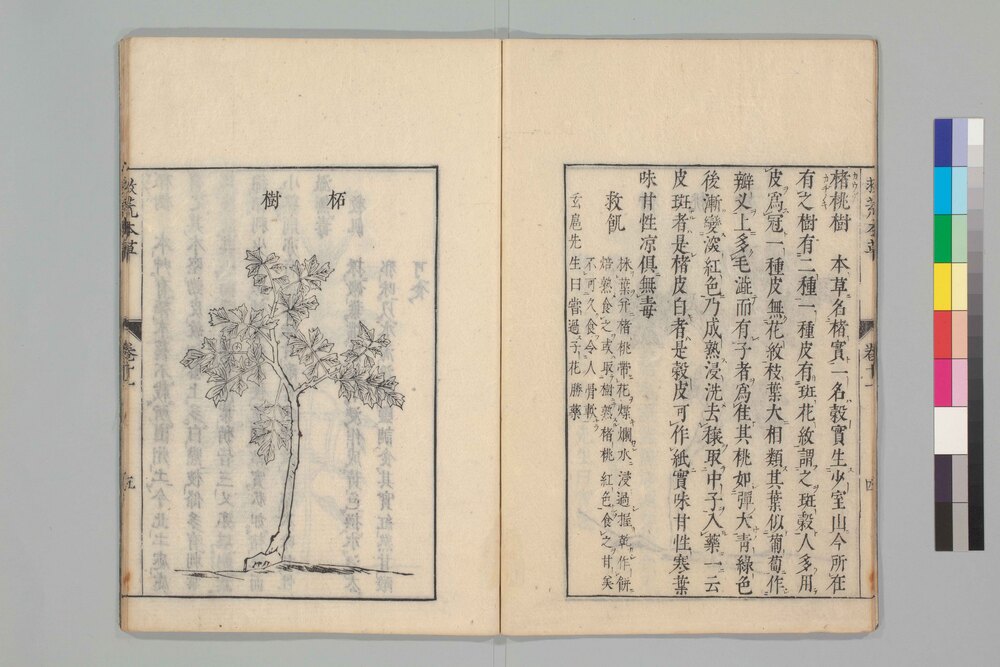 救荒本草
卷廿一
四
楮桃樹 本草名楮實一名穀實生少室山今所在
有之樹有二種一種皮有斑花紋謂之斑穀人多用
皮爲冠一種皮無花紋枝葉大相類其葉似葡萄作
瓣叉上多毛澁而有子者爲佳其桃如彈大青綠色
後漸變深紅色乃成熟浸洗去穰取中子入藥一云
皮斑者是楮皮白者是穀皮可作紙實味甘性寒葉
味甘性凉俱無毒
救飢 採葉并楮桃帶花煠爛水浸過握乾作餅
焙熟食之或取樹熟楮桃紅色食之甘美
不可久食令人骨軟
玄扈先生曰當過子花勝藥
柘樹
救荒本草
卷廿一
五